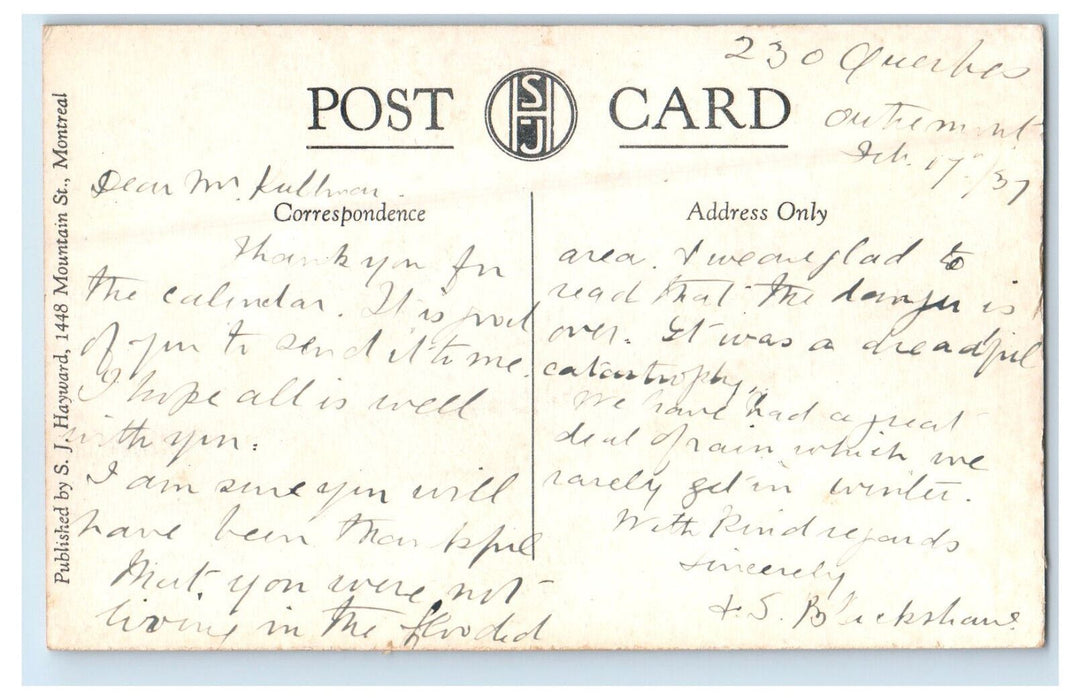 230 Querbes
Outremont
Feb. 17th/37
POST SJ CARD
Dear Mr Kullman.
Correspondence
Address Only
Thank you for
the calendar. It is good
of you to send it to me.
I hope all is well
with you.
I am sure you will
have been thankful
that you were not
living in the flooded
area. & we are glad to
read that the danger is
over. It was a dreadful
catastrophy.
We have had a great
deal of rain which we
rarely get in winter.
With kind regards
Sincerely
S.
Published by S. J. Hayward, 1448 Mountain St., Montreal